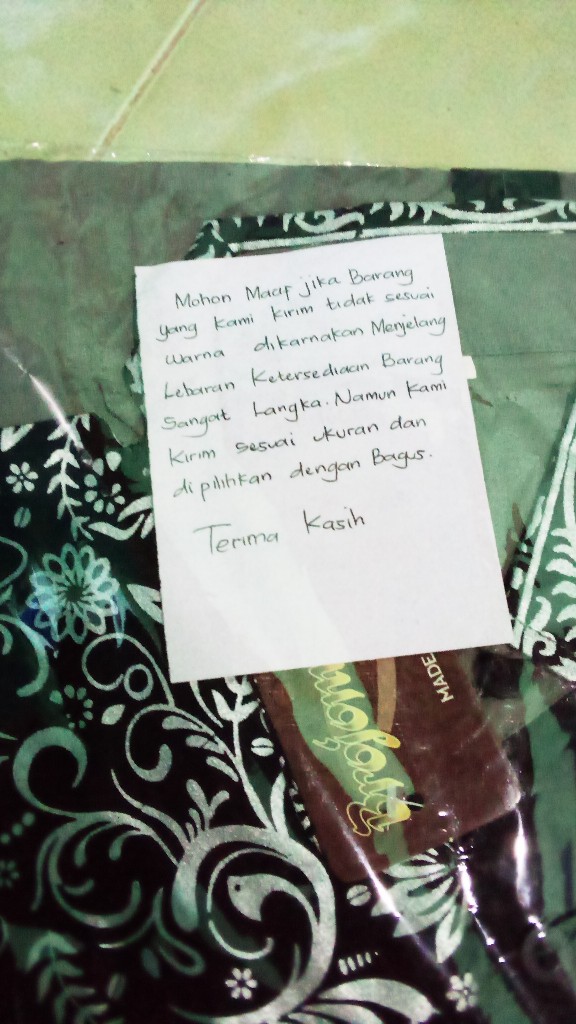 Mohon Maaf jika Barang
yang kami kirim tidak sesuai
warna dikarnakan Menjelang
Lebaran Ketersediaan Barang
Sangat Langka. Namun Kami
Kirim sesuai ukuran dan
di pilihkan dengan Bagus.
Terima Kasih
MADE